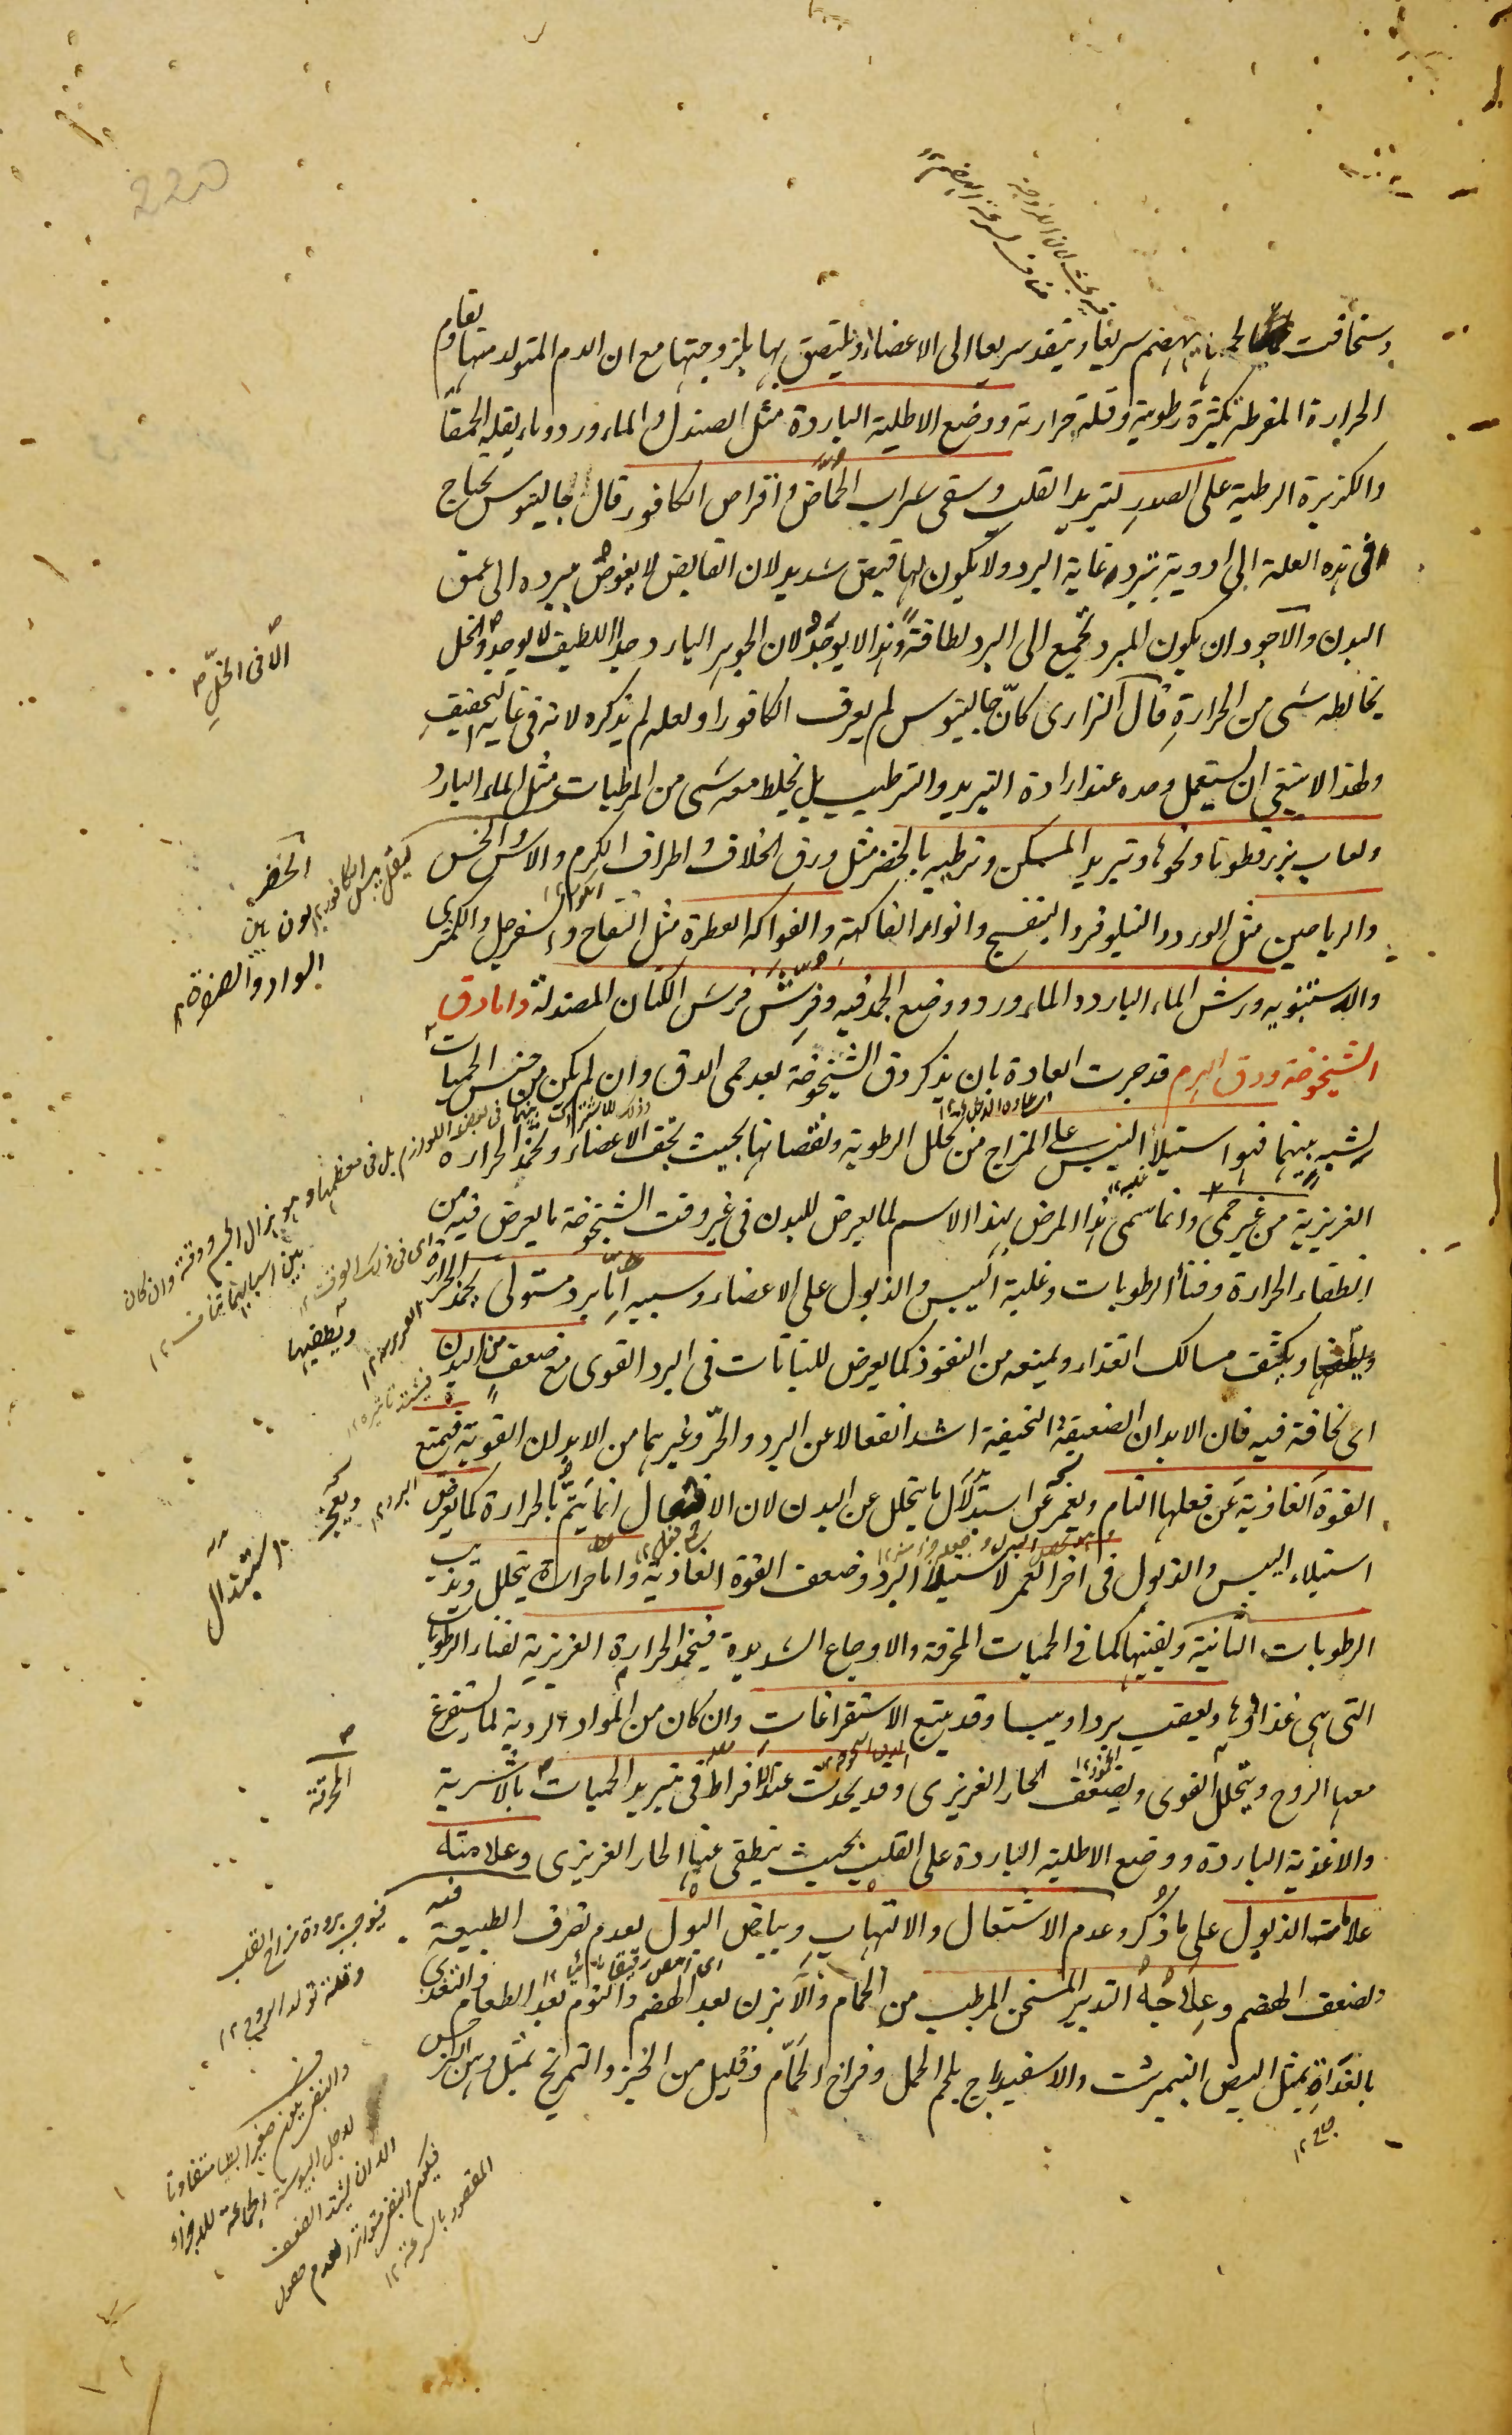 وسخافت لحمها ينهضم سريعا وينفذ سريعا الى الاعضاء ويلتصق بها بلزوجتها مع ان الدم المتولد منها يقاوم
الحرارة المفرطة بكثرة رطوبته وقلة حرارته ووضع الاطلية الباردة مثل الصندل والماء ورد وماء بقلة الحمقا
والكزبرة الرطبة على الصدر لتبريد القلب وسقى شراب الحماض واقراص الكافور قال جالينوس يحتاج
فى هذه العلة الى ادوية تبرد غاية البرد ولا يكون لها قبض شديد لان القابض لا يغوص ببرده الى عمق
البدن والاجود ان يكون المبرد يجمع الى البرد لطافة وهذا لا يوجد لان الجوهر البارد جدا اللطيف لا يوجد والخل
يخالطه شى من الحرارة قال الرازى كانّ جالينوس لم يعرف الكافور او لعله لم يذكره لانه فى غاية التجفيف
ولهذا لا ينبغى ان يستعمل وحده عند ارادة التبريد والترطيب بل يخلط معه شى من المرطبات مثل الماء البارد
ولعاب بزر قطونا ونحوها وتبريد المسكن وترطيبه بالخضر مثل ورق الخلاف واطراف الكرم والآس والخس
والرياحين مثل الورد والنيلوفر والبنفسج وانواع الفاكهة والفواكه العطرة مثل التفاح والسفرجل والكمثرى
والاستنبويه ورش الماء البارد والماء ورد ووضع الجمد فيه وفرش فرش الكتان المصندلة واما دق
الشيخوخة ودق الهرم قد جرت العادة بان يذكر دق الشيخوخة بعد حمى الدق وان لم يكن من جنس الحميات
لشبه بينهما فهو استيلاء اليبس على المزاج من تحلل الرطوبة ونقصانها بحيث تجف الاعضاء وتخمد الحرارة
الغريزية من غير حمى وانما سمى هذا المرض بهذا الاسم لما يعرض للبدن فى غير وقت الشيخوخة ما يعرض فيه من
انطفاء الحرارة وفناء الرطوبات وغلبة اليبس والذبول على الاعضاء وسببه اما برد مستولى يخمد الحرارة
ويطفئها ويكثف مسالك الغذاء ويمنعه من النفوذ كما يعرض للنباتات فى البرد القوى مع ضعف من البدن
اى نحافة فيه فان الابدان الضعيفة النحيفة اشد انفعالا عن البرد والحرّ وغيرهما من الابدان القوية فيمنع
القوة الغاذية عن فعلها التام ويعجز عن استبدال ما يتحلل عن البدن لان الافعال انما يتم بالحرارة كما يعرض
استيلاء اليبس والذبول فى اخر العمر لاستيلاء البرد وضعف القوة الغاذية واما حرارة يتحلل وتذيب
الرطوبات الثانية ويفنيها كما فى الحميات المحرقة والاوجاع الشديدة فيخمد الحرارة الغريزية لفناء الرطوبات
التى هى غذاؤها ويعقب بردا ويبسا وقد يتبع الاستفراغات وان كان من المواد الردية لما يستفرغ
معها الروح ويتحلل القوى ويضعف الحار الغريزى وقد يحدث عند الافراط فى تبريد الحميات بالاشربة
والاغذية الباردة ووضع الاطلية الباردة على القلب بحيث ينطفى عنها الحار الغريزى وعلامته
علامة الذبول على ما ذكر وعدم الاشتعال والالتهاب وبياض البول لعدم تصرف الطبيعة فيه
ولضعف الهضم وعلاجه التدبير المسخن المرطب من الحمام والآبزن بعد الهضم والنوم بعد الطعام والتغذى
بالغداة بمثل البيض النيمبرشت والاسفيدباج بلحم الحمل وفراخ الحمام وقليل من الخبز والتمريخ بمثل دهن النرجس
الا فى الخلّ
الخضر
المحرقة
ويطفيها
فيوجب برودة مزاج القلب
وقلة تولد الروح ١٢
220